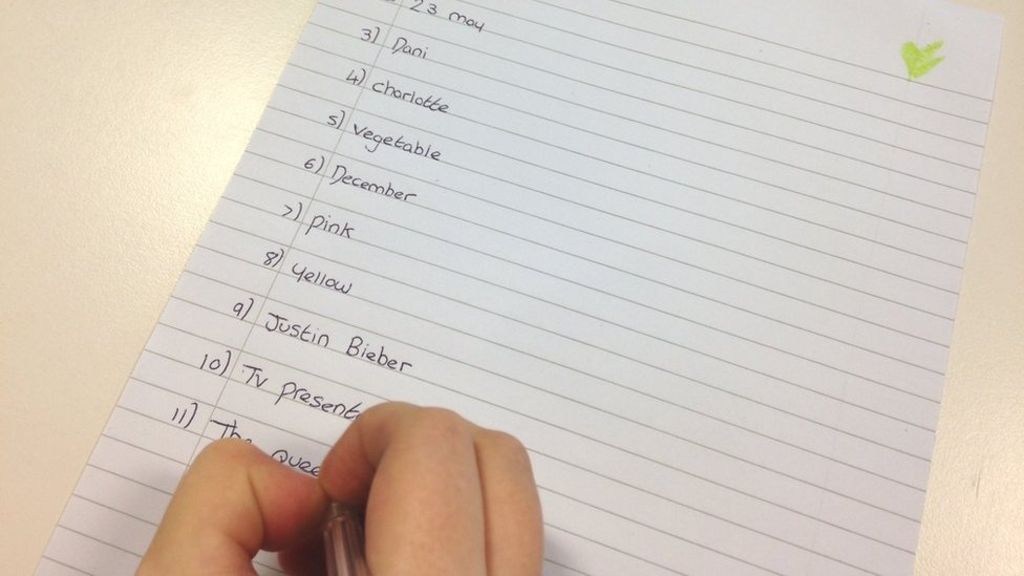 23 may
3) Dani
4) charlotte
5) vegetable
6) December
7) pink
8) yellow
9) Justin Bieber
10) TV present
11) The quee